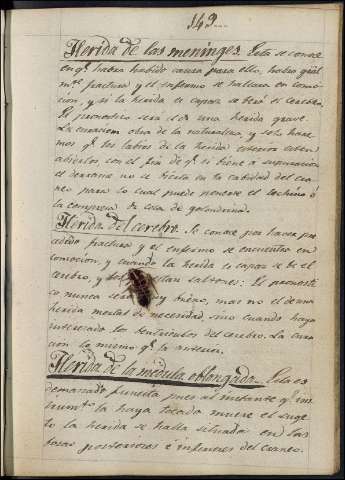 149..
Herida de las meninges. Esta se conoce
en q.e habra habido causa para ello, habra gral
m.te fractura y el enfermo se hallara en conmo-
cion, y si la herida es capaz se verá el cerebro.
El pronostico será el de una herida grave.
La curacion obra de la naturaleza y solo hare-
mos q.e los labios de la herida esterior esten
abiertos con el fin de q.e si biene á supuracion
el derrame no se bierta en la cabidad del cra-
neo para lo cual puede ponerse el lechino ó
la compresa de cola de golondrina.
Herida del cerebro. Se conoce por haver pre-
cedido fractura y el enfermo se encuentra en
conmocion, y cuando la herida es capaz se be el
cerebro, y estan saltones: El pronosti-
co nunca será muy bueno, mas no el de una
herida mortal de necesidad, sino cuando haya
interesado los bentriculos del cerebro. La cura-
cion lo mismo q.e la anterior.
Herida de la médula oblongada. Esta es
demasiado funesta pues al instante q.e el ins-
trum.to la haya tocado muere el suge-
to la herida se halla situada en las
fosas posteriores é inferiores del craneo.